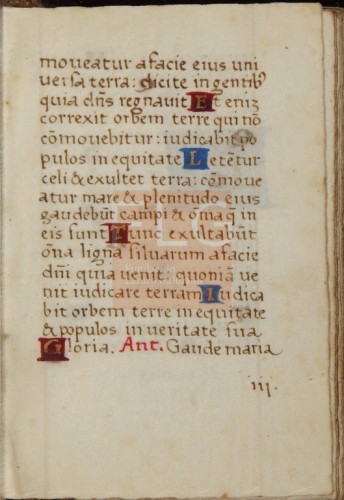 moveatur a facie eius uni
versa terra: dicite in gentibꝰ
quia dn̄s regnavit Et eniꝫ
correxit orbem terre qui nō
cōmovebitur: iudicabit po
pulos in equitate Letēntur
celi & exultet terra: cōmove
atur mare & plenitudo eius
gaudebūt campi & om̄a q̄ in
eis sunt Tunc exultabūt
on̄a ligna silvarum a facie
dn̄i quia venit: quoniā ve
nit iudicare terram Iudica
bit orbem terre in equitate
& populos in veritate sua
Gloria. Ant. Gaude maria
iij.